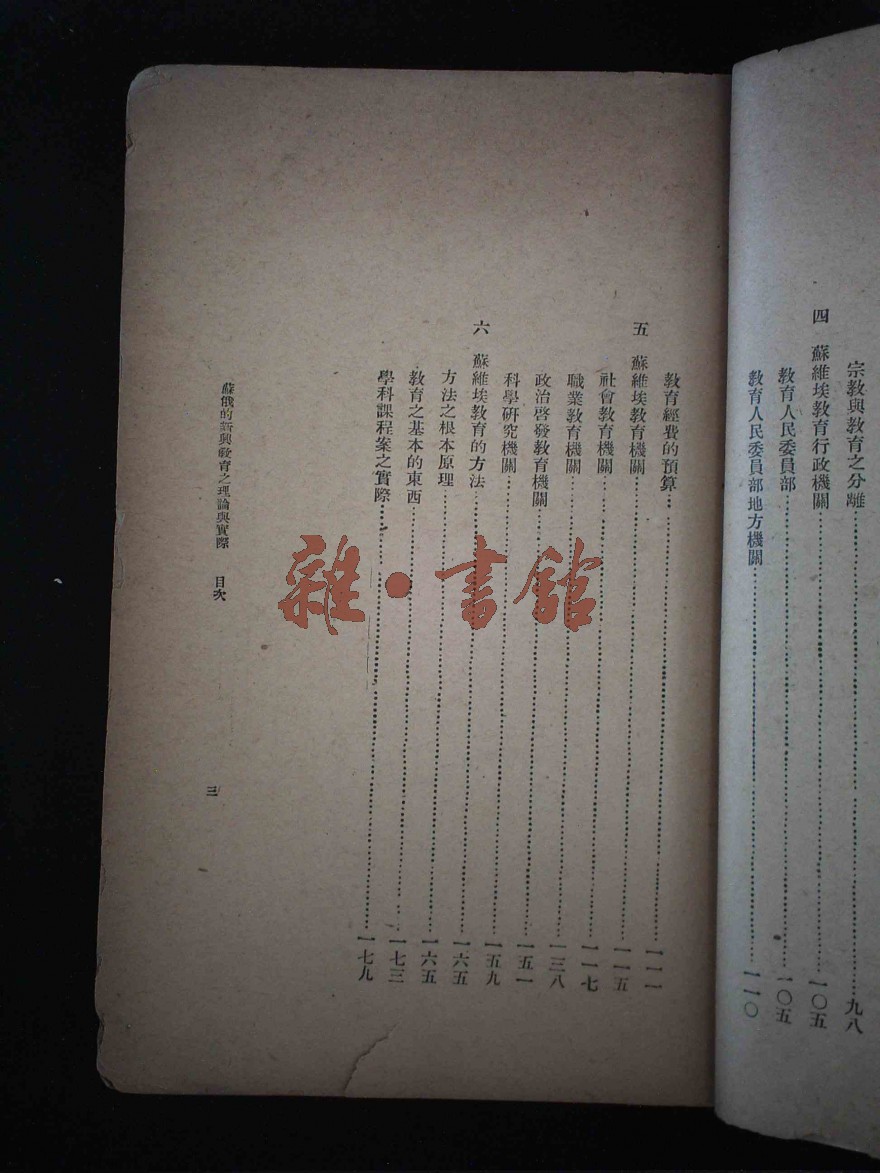 宗教與教育之分離……九八
四　蘇維埃教育行政機關……一〇五
教育人民委員部……一〇五
教育人民委員部地方機關……一一〇
教育經費的預算……一一一
五　蘇維埃教育機關……一一五
社會教育機關……一一七
職業教育機關……一三八
政治啓發教育機關……一五一
科學研究機關……一五九
六　蘇維埃教育的方法……一六五
方法之根本原理……一六五
教育之基本的東西……一七三
學科課程案之實際……一七九
蘇俄的新興教育之理論與實際　目次　三
雜·書館